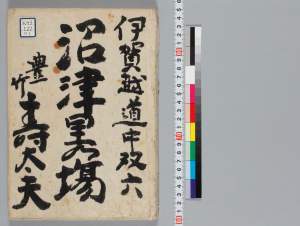 伊賀越道中双六
沼津里場
豊竹
寿太夫